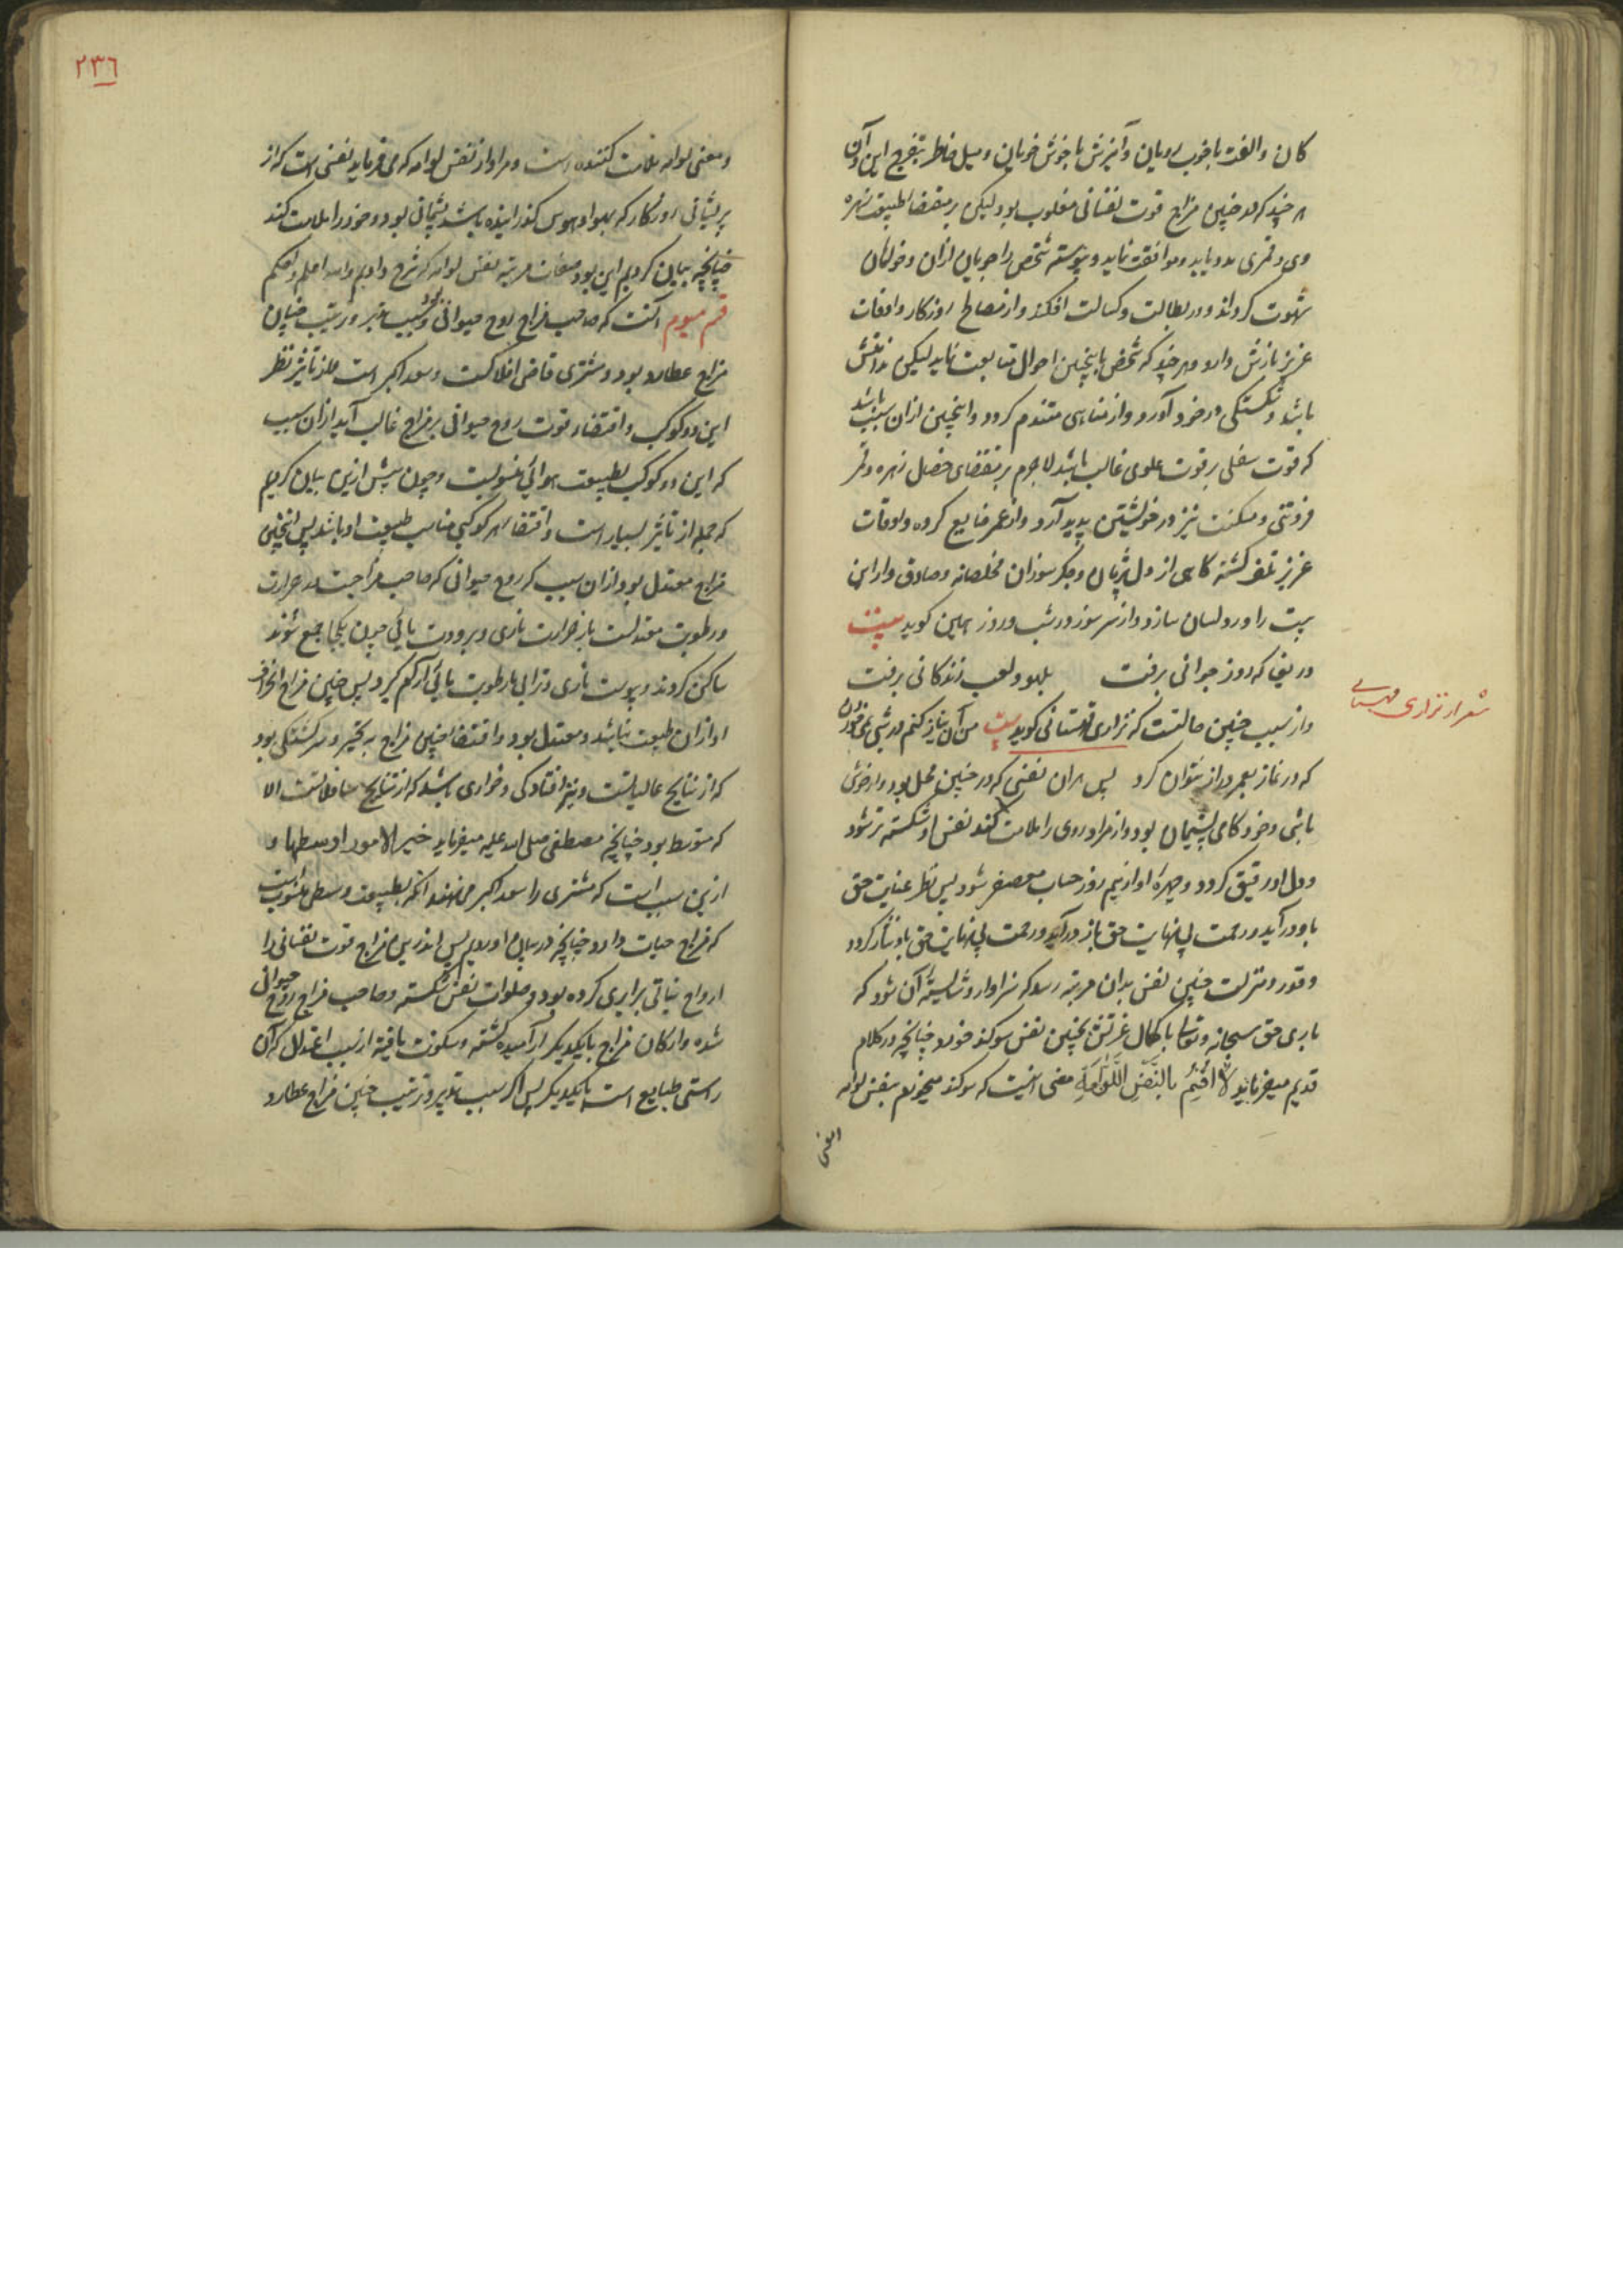 کان و الفت با خوب رویان و آمیزش با خوش خویان و میل خاطر بتفرج این و آن
هر چند که در چنین مزاج قوت نفسانی مغلوب بود لیکن بر مقتضا طبیعت زهره
وی و قمری مدد یابد و موافقت نماید و پیوسته شخص را جویان لذان و خواهان
شهوت کرداند و در بطالت و کسالت افکند و از مصالح روزکار و اوقات
عزیز بازش دارد و هر چند که شخص باینچنین احوال متابعت نماید لیکن
باشد و شکستکی در خود آورد و از مناهی متندم کردد و اینچنین ازان سبب باشد
که قوت سفلی بر قوت علوی غالب باشد لا جرم بر مقتضای خصل زهره و قمر
فروتنی و مسکنت نیز در خویشتن پدید آرد و از عمر ضایع کرده و اوقات
عزیز تلف کشته کاهی از دل بریان و جکر سوزان مخلصانه و صادق وار این
بیت را ورد لسان سازد و از سر سوز و درد شب و روز همین کوید بیت
دریغا که روز جوانی برفت بلهو و لعب زندکانی برفت
و از سبب چنین حالتست که نزاری قهستانی کوید بیت من آن نیاز کنم در شبی
که در نماز بعمر دراز نتوان کرد پس هران نفسی که در چنین محل بود و از خوش
باشی و خود کامی پشیمان بود و از مراد روی را ملامت کند نفس او شکسته تر شود
و دل او رقیق کردد و چهره او از بیم روز حساب معصفر شود پس نظر عنایت حق
باو در آید و رحمت بی نهایت حق باز در آید و رحمت بی نهایت حق باو نثار کردد
و قدر و منزلت چنین نفس بدان مرتبه رسد که سزاوار و شایسته آن شود که
باری حق سبحانه و تعالی با کمال عزتش بچنین نفس سوکند خورد چنانچه در کلام
قدیم میفرماید لا اقسم بالنفس اللوامة معنی انیست که سوکند میخورم بنفس لوامه
شعر از نزاری قهستانی
۲۳۶
و معنی لوامه ملامت کننده است و مراد از نفس لوامه که می فرماید نفسی است که از
پریشانی روزکار که بهوا و هوس کذرانیده باشد پشیمانی بود و خود را ملامت کند
چنانچه بیان کردیم این بود صفات مرتبه نفس لوامه که شرح دادیم والله اعلم و احکم
قسم سیوم آنست که صاحب مزاج روح حیوانی بود و بسبب تدبیر و ترتیب چنان
مزاج عطارد بود و مشتری قاضی افلاکست و سعد اکبر است تاثیر نظر
این دو کوکب و اقتضاء قوت روح حیوانی بر مزاج غالب آید ازان سبب
که این دو کوکب بطبیعت هوائی منسوبست و چون پیش ازین بیان کردیم
که جمله از تاثیر بسیار است و اقتضا هر کوکبی مناسب طبیعت او باشد پس اینچنین
مزاج معتدل بود ازان سبب که روح حیوانی که صاحب مزاجیت در حرارت
و رطوبت معتدلست باز حرارت ناری و برودت یائی چون یکجا جمع شوند
ساکن کردند و یبوست ناری و ترابی با رطوبت یائی آرام کیرد پس چنین مزاج انحراف
او ازان طبیعت نباشد و معتدل بود و اقتضا چنین مزاج نه تکبر و سرکشتکی بود
که از نتایج عالیاتست و نیز افتادکی و خواری باشد که از نتایج سافلاتست الا
که متوسط بود چنانچه مصطفی صلی الله علیه میفرماید خیر الامور اوسطها و
ازین سبب است که مشتری را سعد اکبر می نهند انکه بطبیعت وسطی منسوب است
که مزاج حیات دارد چنانچه در بیان اوردیم پس اندرین مزاج قوت نفسانی را
ارواح نباتی برابری کرده بود و صلوات نفس شکسته و صاحب مزاج روح حیوانی
شده و ارکان مزاج بایکدیکر آرامیده کشته و سکونت یافته از سبب اعتدال که آن
راستی طبایع است بایکدیکر پس اکر سبب تدبیر و ترتیب چنین مزاج عطارد